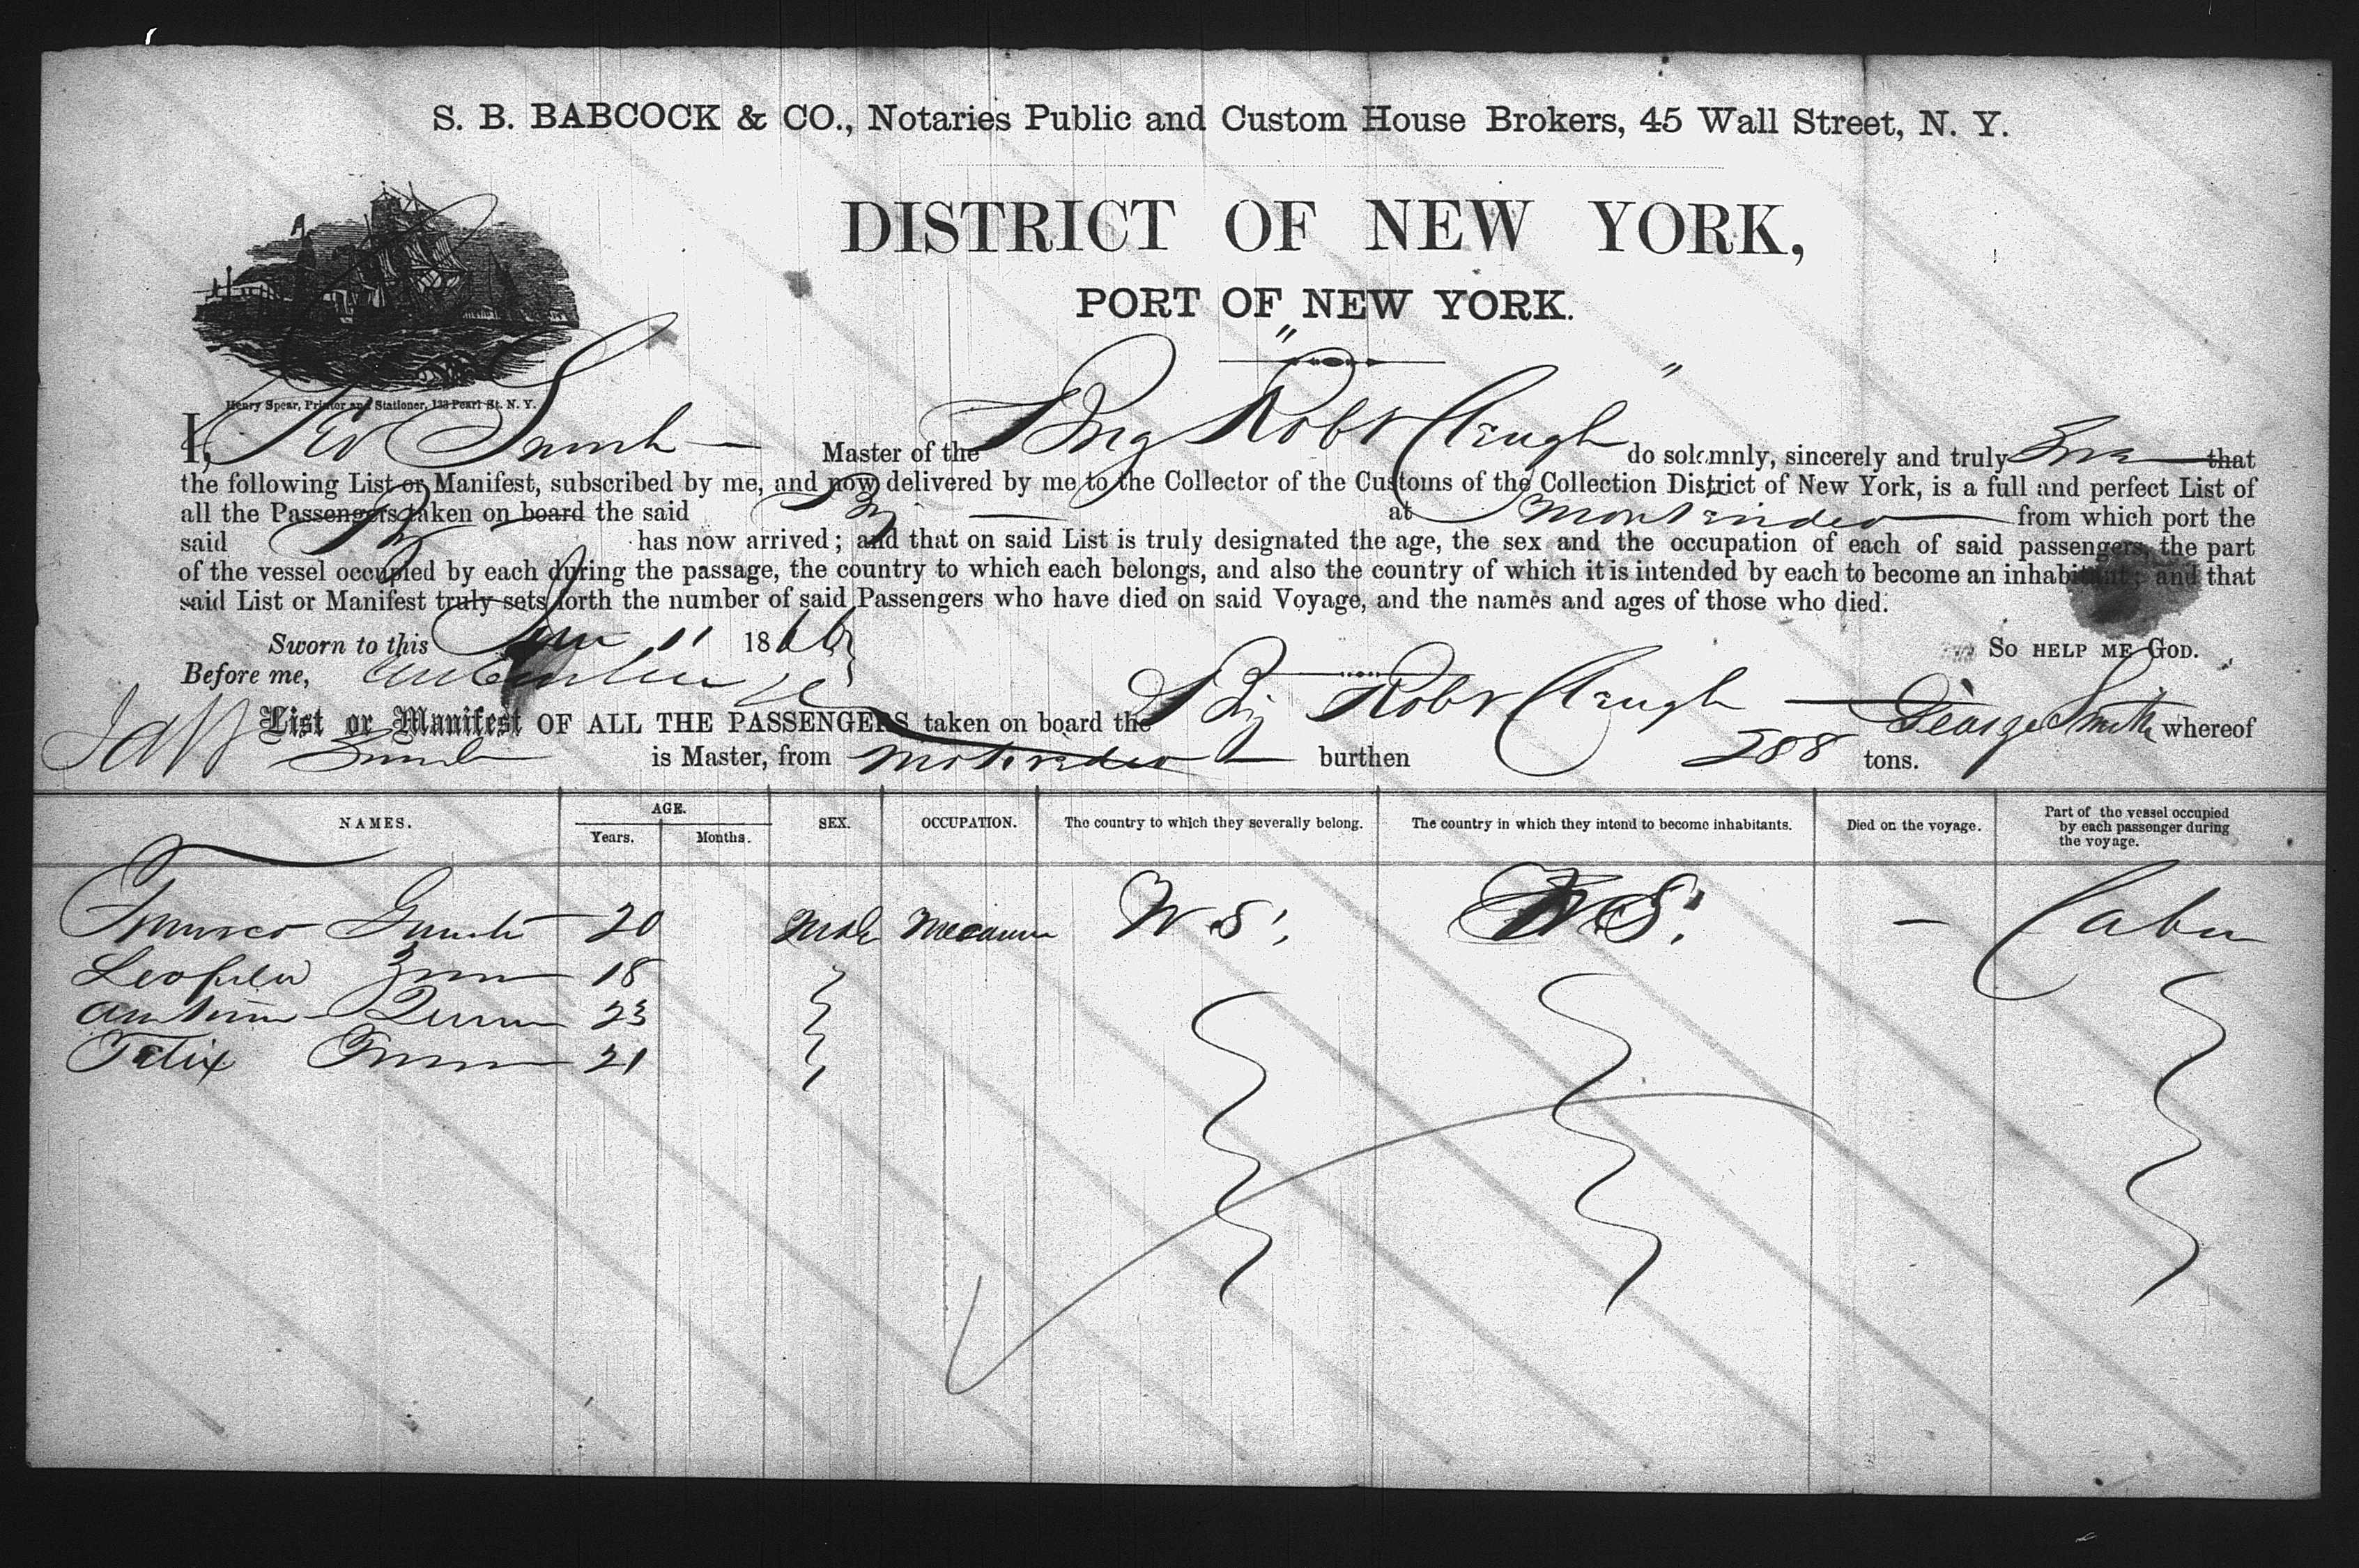 S. B. BABCOCK & CO., Notaries Public and Custom House Brokers, 45 Wall Street, N. Y.
DISTRICT OF NEW YORK,
PORT OF NEW YORK.
Henry Spear, Printer and Stationer, 133 Pearl St. N. Y.
I, Geo Smith Master of the Brig Robt Clough do solemnly, sincerely and truly that
the following List or Manifest, subscribed by me, and now delivered by me to the Collector of the Customs of the Collection District of New York, is a full and perfect List of
all the Passengers taken on board the said Brig at Montevideo from which port the
said Brig has now arrived; and that on said List is truly designated the age, the sex and the occupation of each of said passengers, the part
of the vessel occupied by each during the passage, the country to which each belongs, and also the country of which it is intended by each to become an inhabitant; and that
said List or Manifest truly sets forth the number of said Passengers who have died on said Voyage, and the names and ages of those who died.
Sworn to this 11 1866 SO HELP ME GOD.
Before me,
List or Manifest OF ALL THE PASSENGERS taken on board the Brig Robt Clough George Smith whereof
Smith is Master, from Montevideo burthen 288 tons.
NAMES. AGE. Years. Months. SEX. OCCUPATION. The country to which they severally belong. The country in which they intend to become inhabitants. Died on the voyage. Part of the vessel occupied by each passenger during the voyage.
20 Male S. S. — Cabin
18
23
Felix 21